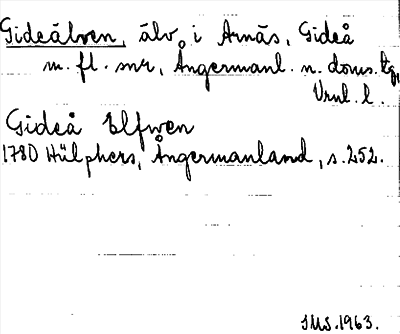 Gideälven, älv i Arnäs, Gideå
m. fl. snr, Ångermanl. n. doms. tg,
Vrnl. l.
Gideå Elfwen
1780 Hülphers, Ångermanland, s. 252.
IMS. 1963.